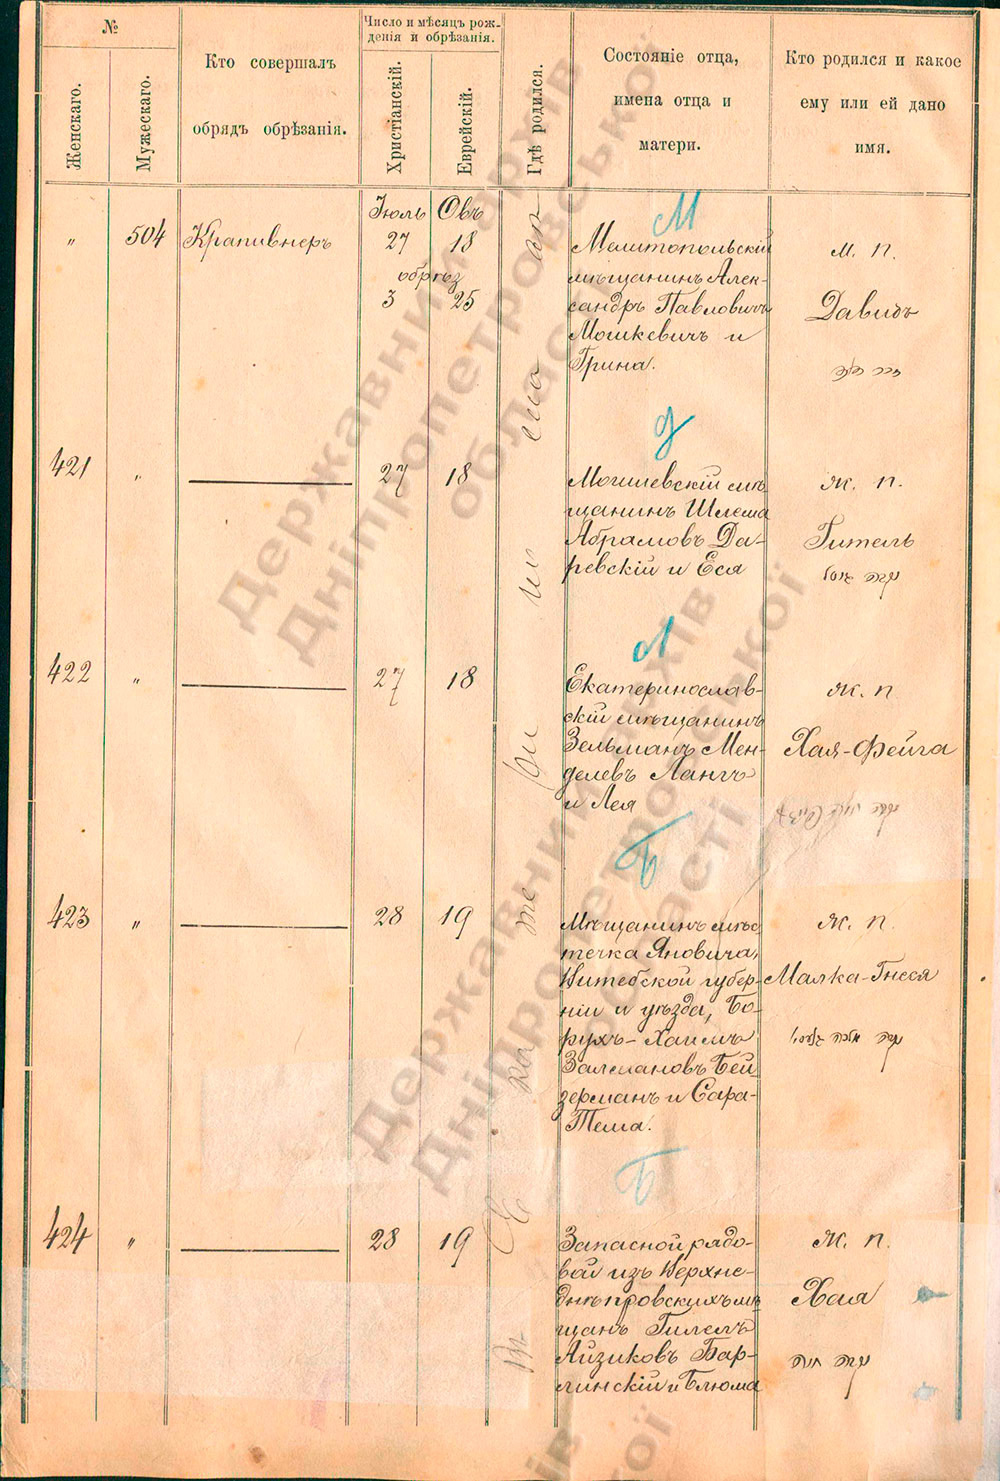 №
Женскаго.
Мужескаго.
Кто совершалъ
обрядъ обрѣзанія.
Число и мѣсяцъ рож-
денія и обрѣзанія.
Христіанскій.
Еврейскій.
Гдѣ родился.
Состояніе отца,
имена отца и
матери.
Кто родился и какое
ему или ей дано
имя.
Іюль Овъ
" 504 Крапивнеръ 27 18
обрѣз
3 25
М
Мелитопольскій
мѣщанинъ Алек-
сандръ Павловичъ
Мошкевичъ и
Грина.
м. п.
Давидъ
421 " 27 18
Д
Могилевскій мѣ
щанинъ Шлема
Абрамовъ Да-
ревскій и Еся
ж. п.
Гитель
422 " 27 18
Л
Екатеринослав-
скій мѣщанинъ
Зельманъ Мен-
делевъ Лангъ
и Лея
ж. п
Хая-Фейга
423 " 28 19
Б
Мѣщанинъ мѣс
течка Яновича,
Витебской губер-
ніи и уѣзда, Бо-
рухъ-Хаимъ
Залмановъ Бей
зерманъ и Сара-
Тема.
ж. п.
Малка-Гнеся
424 " 28 19
Б
Запасной рядо-
вой изъ Верхне-
днѣпровскихъ мѣ
щанъ Гилель
Айзиковъ Бар-
линскій и Блюма
ж. п.
Хая
Державний архів
Дніпропетровської
області
Державний архів
Дніпропетровської
області